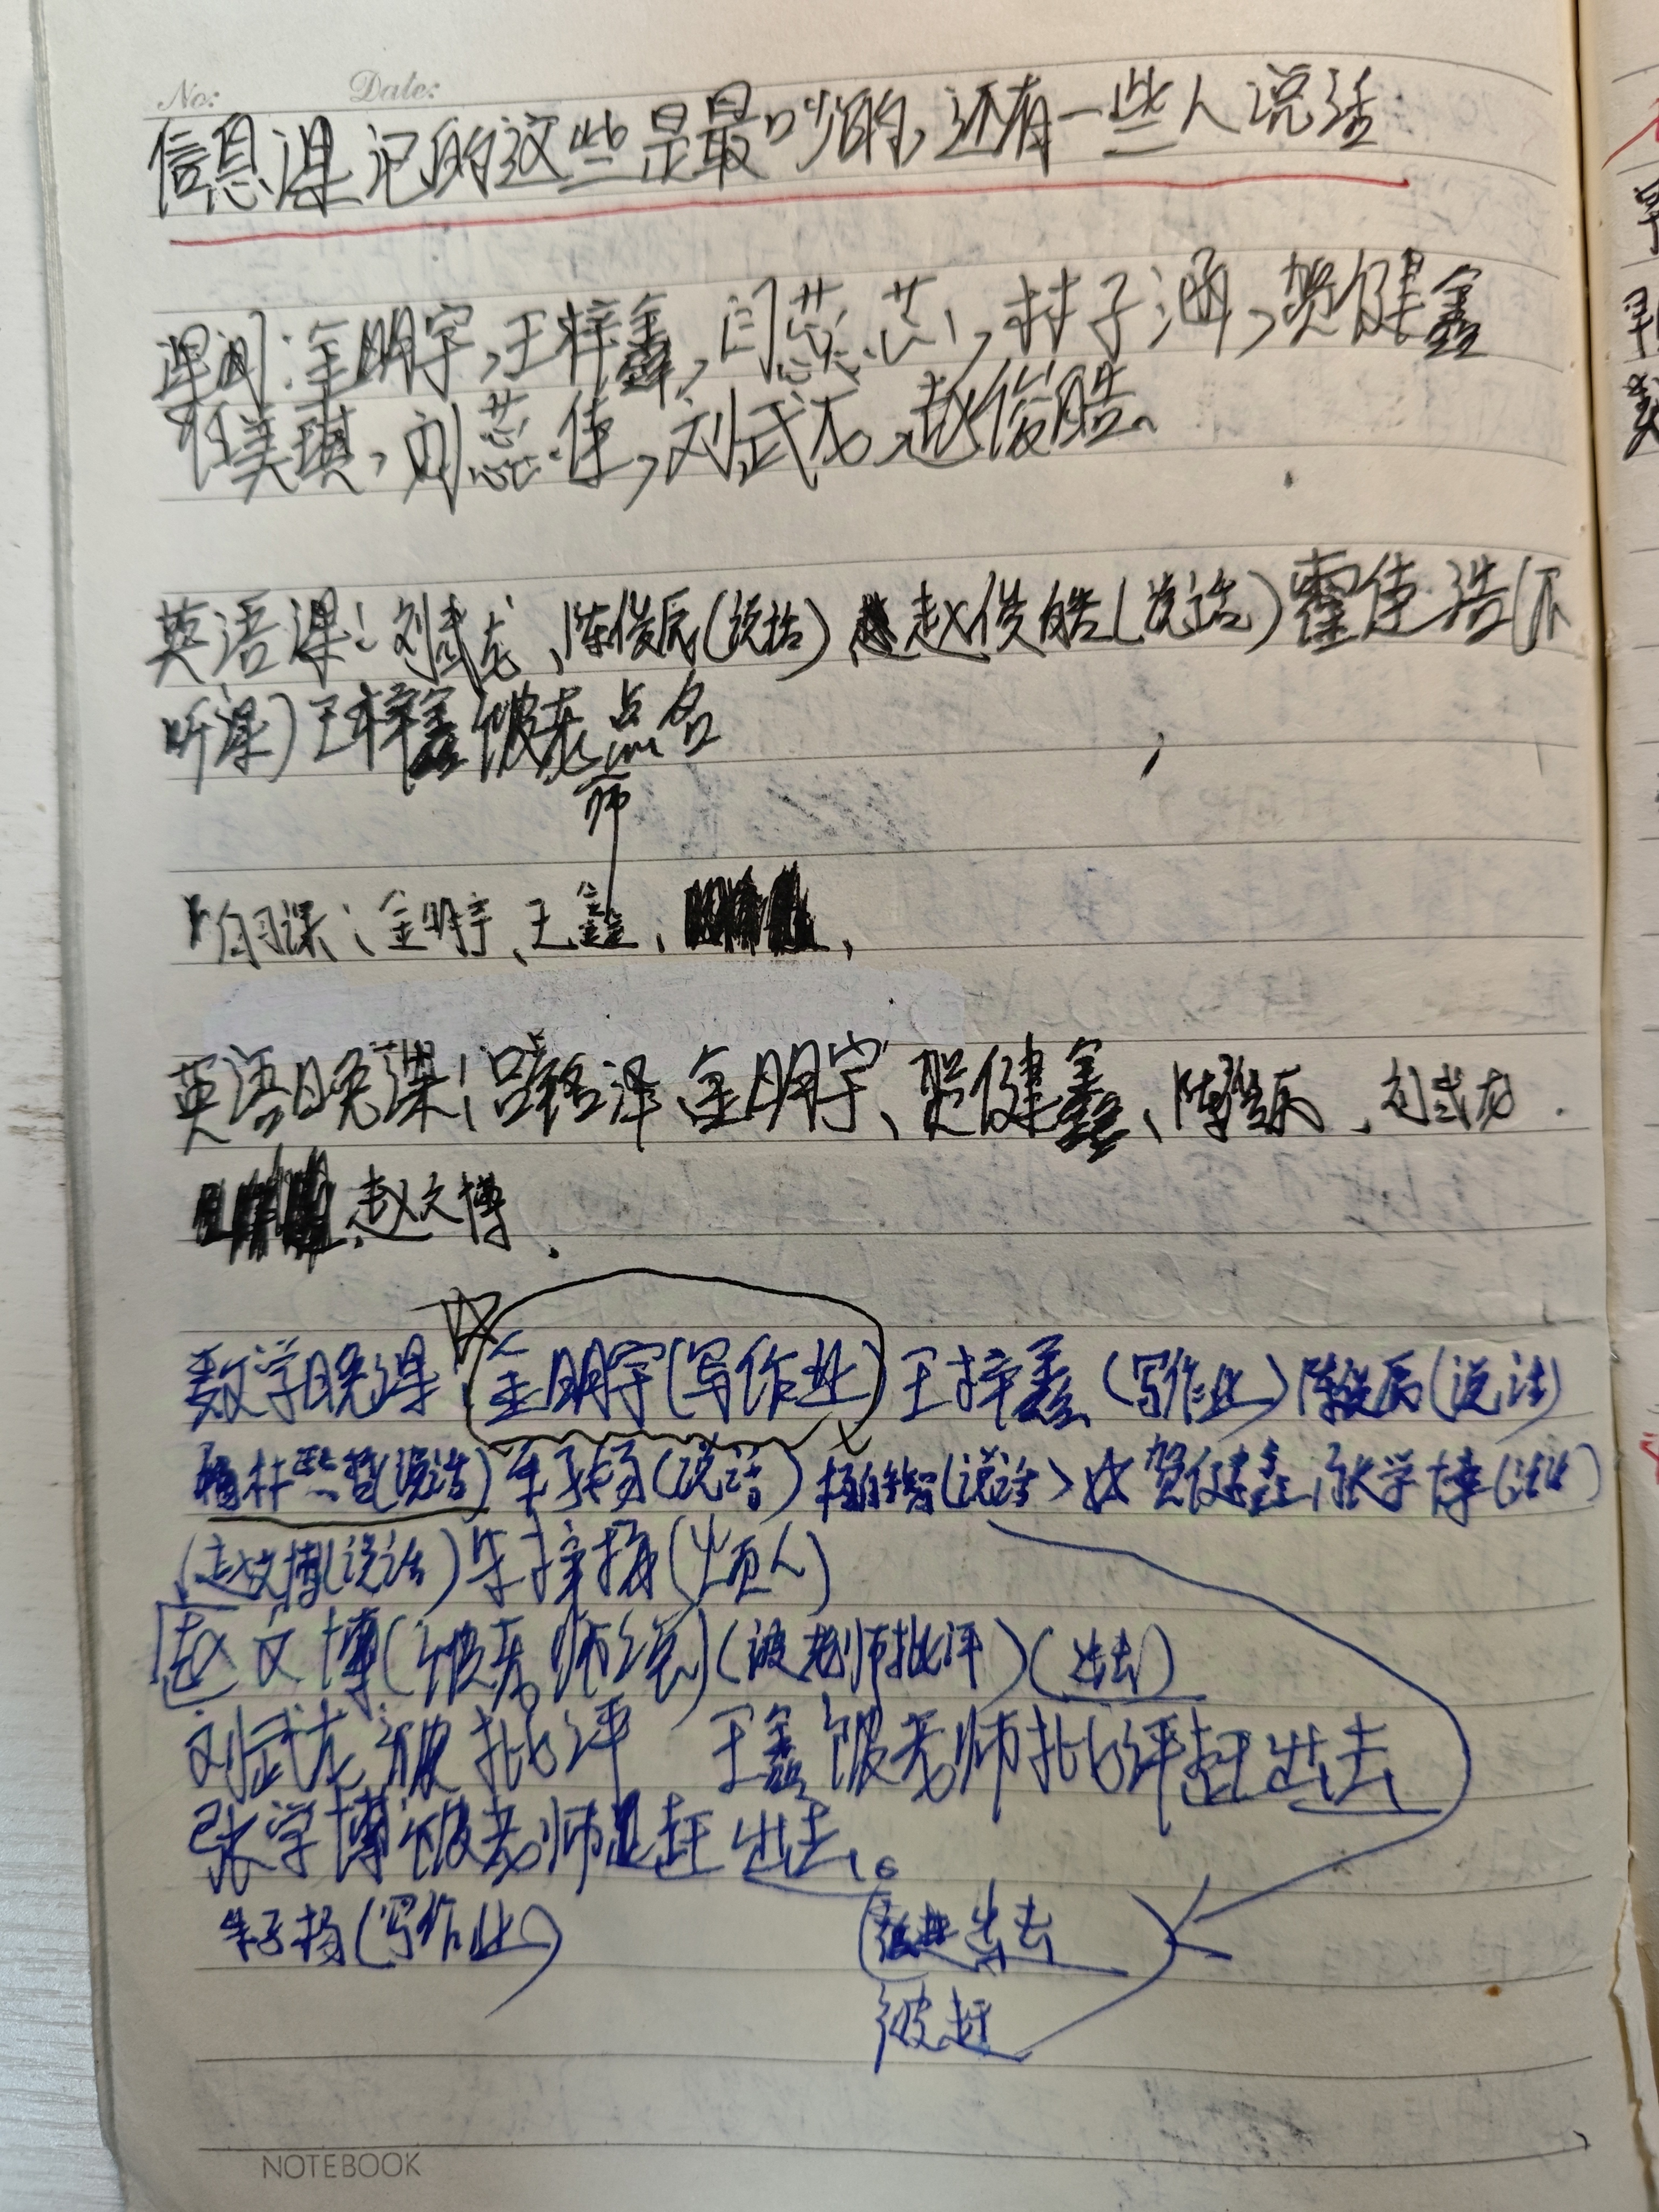 No: Date:
信息课记的这些是最吵的,还有一些人说话
课间:金明宇,王梓鑫,闫蕊芯,林子涵,贺健鑫
任美琪,刘蕊佳,刘武龙,赵俊皓、
英语课:刘武龙、陈俊辰(说话)赵俊皓(说话)霍佳浩(不
听课)王梓鑫被老师点名
自习课:金明宇、王鑫、
英语晚课:吕铭泽、金明宇、贺健鑫、陈俊辰、刘武龙.
赵文博、
数学晚课 金明宇(写作业)王梓鑫(写作业)陈俊辰(说话)
林熙哲(说话)朱子杨(说话)(说话)贺健鑫,张学博(说话)
(赵文博(说话)朱梓杨(烦人)
赵文博(被老师)(被老师批评)(出去)
刘武龙被批评 王鑫被老师批评赶出去
张学博被老师赶出去。
朱子杨(写作业) 出去
被赶
NOTEBOOK